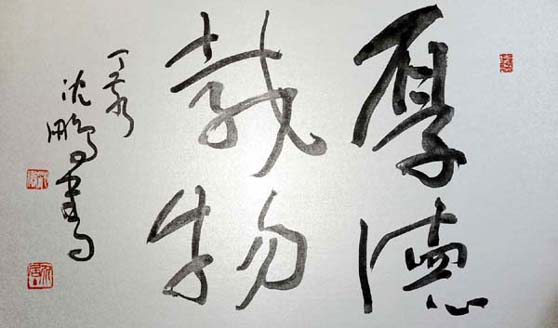 厚德
载物
丁亥
沈鹏书